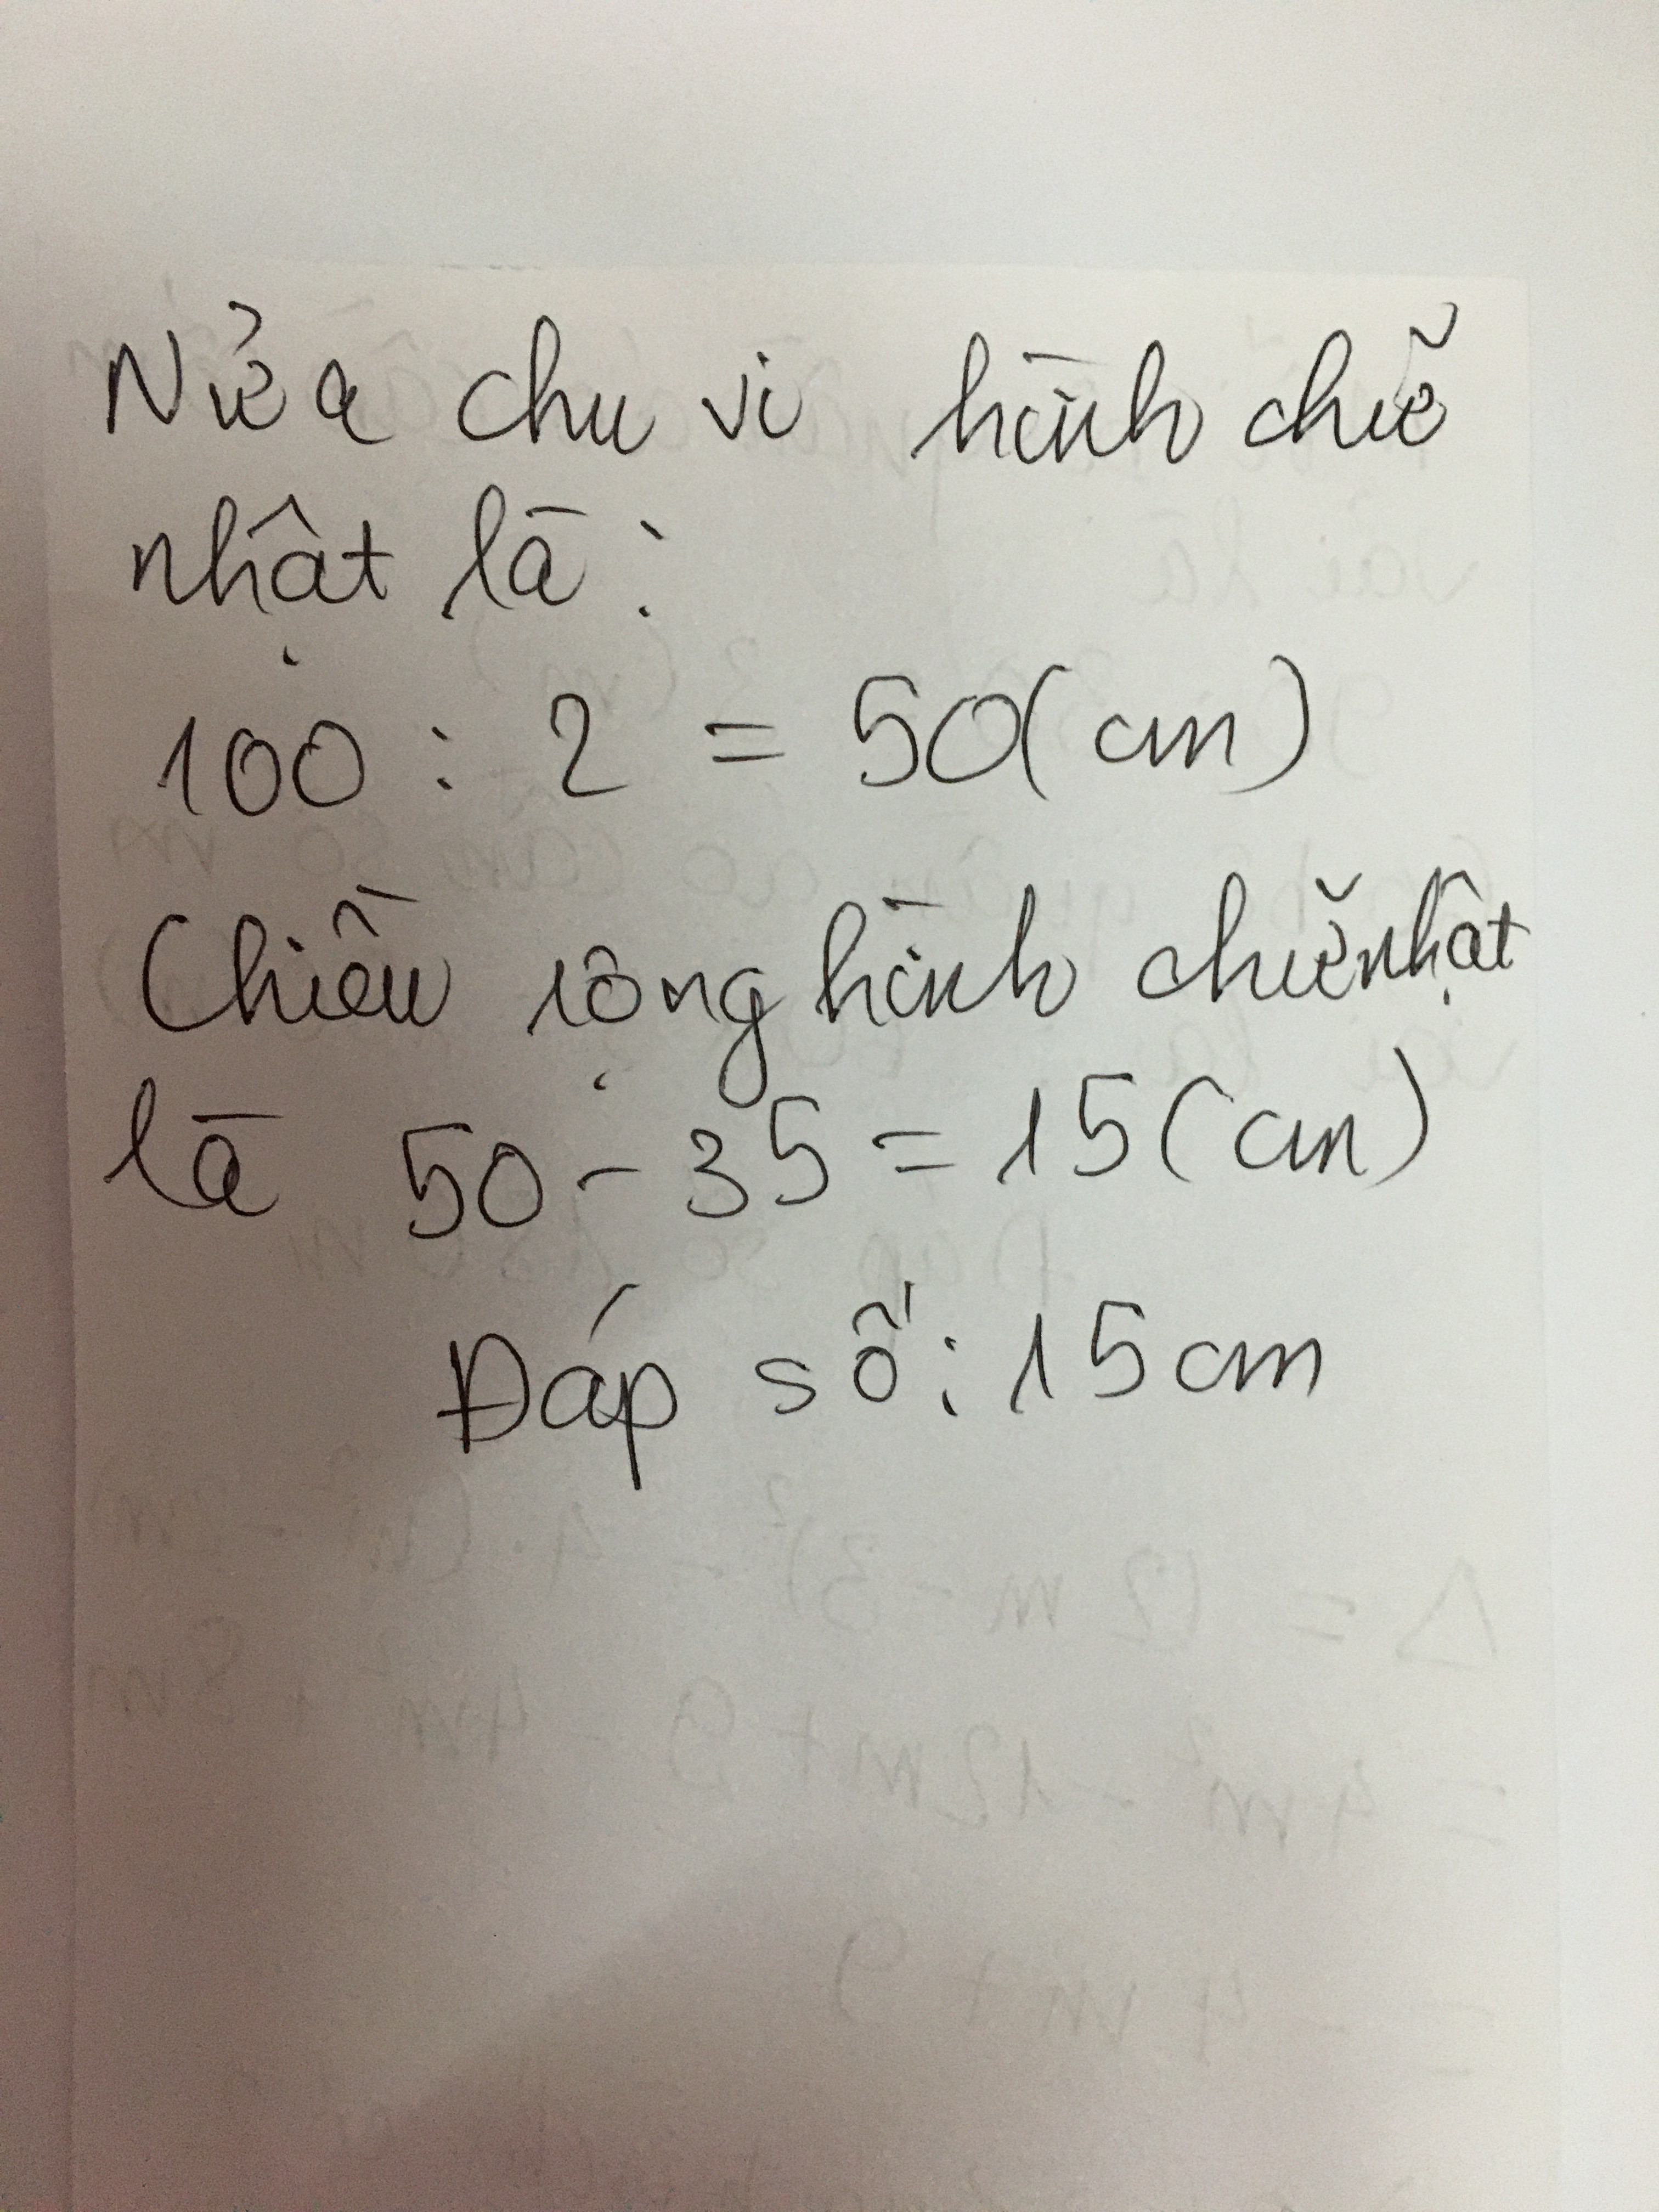 Nửa chu vi hình chữ
nhật là:
100 : 2 = 50 (cm)
Chiều rộng hình chữ nhật
là 50 - 35 = 15 (cm)
Đáp số: 15 cm